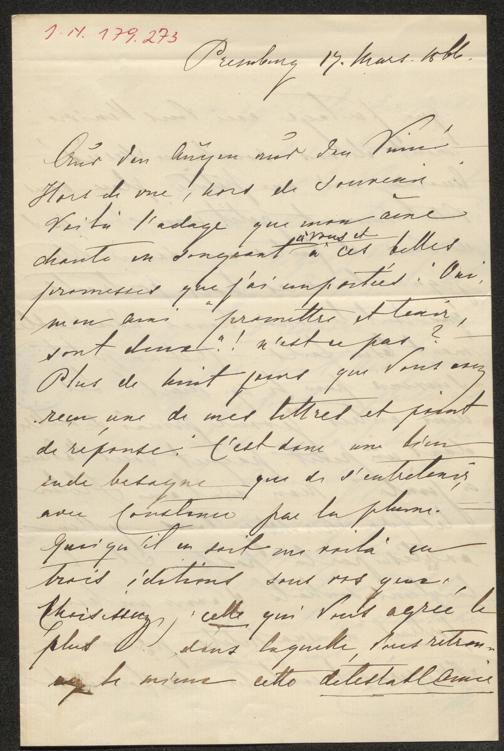 J. N. 179.273
Pressburg 17. Mars. 1866.
Aus den Augen aus den Sinn!
Hors de vue, hors de souvenir
Voilà l'adage que mon âme
chante en songeant à vous et à ces belles
promesses que j'ai emportées! Oui,
mon ami "promettre et tenir,
sont deux"! n'est ce pas?
Plus de huit jours que Vous avez
reçu une de mes lettres et point
de réponse! C'est donc une bien
rude besogne que de s'entretenir
avec Constance par la plume.
Quoiqu'il en soit me voilà en
trois éditions sous vos yeux.
Choisissez, celle qui Vous agrée le
plus dans laquelle, Vous retrou-
vez le mieux cette detestabl amie